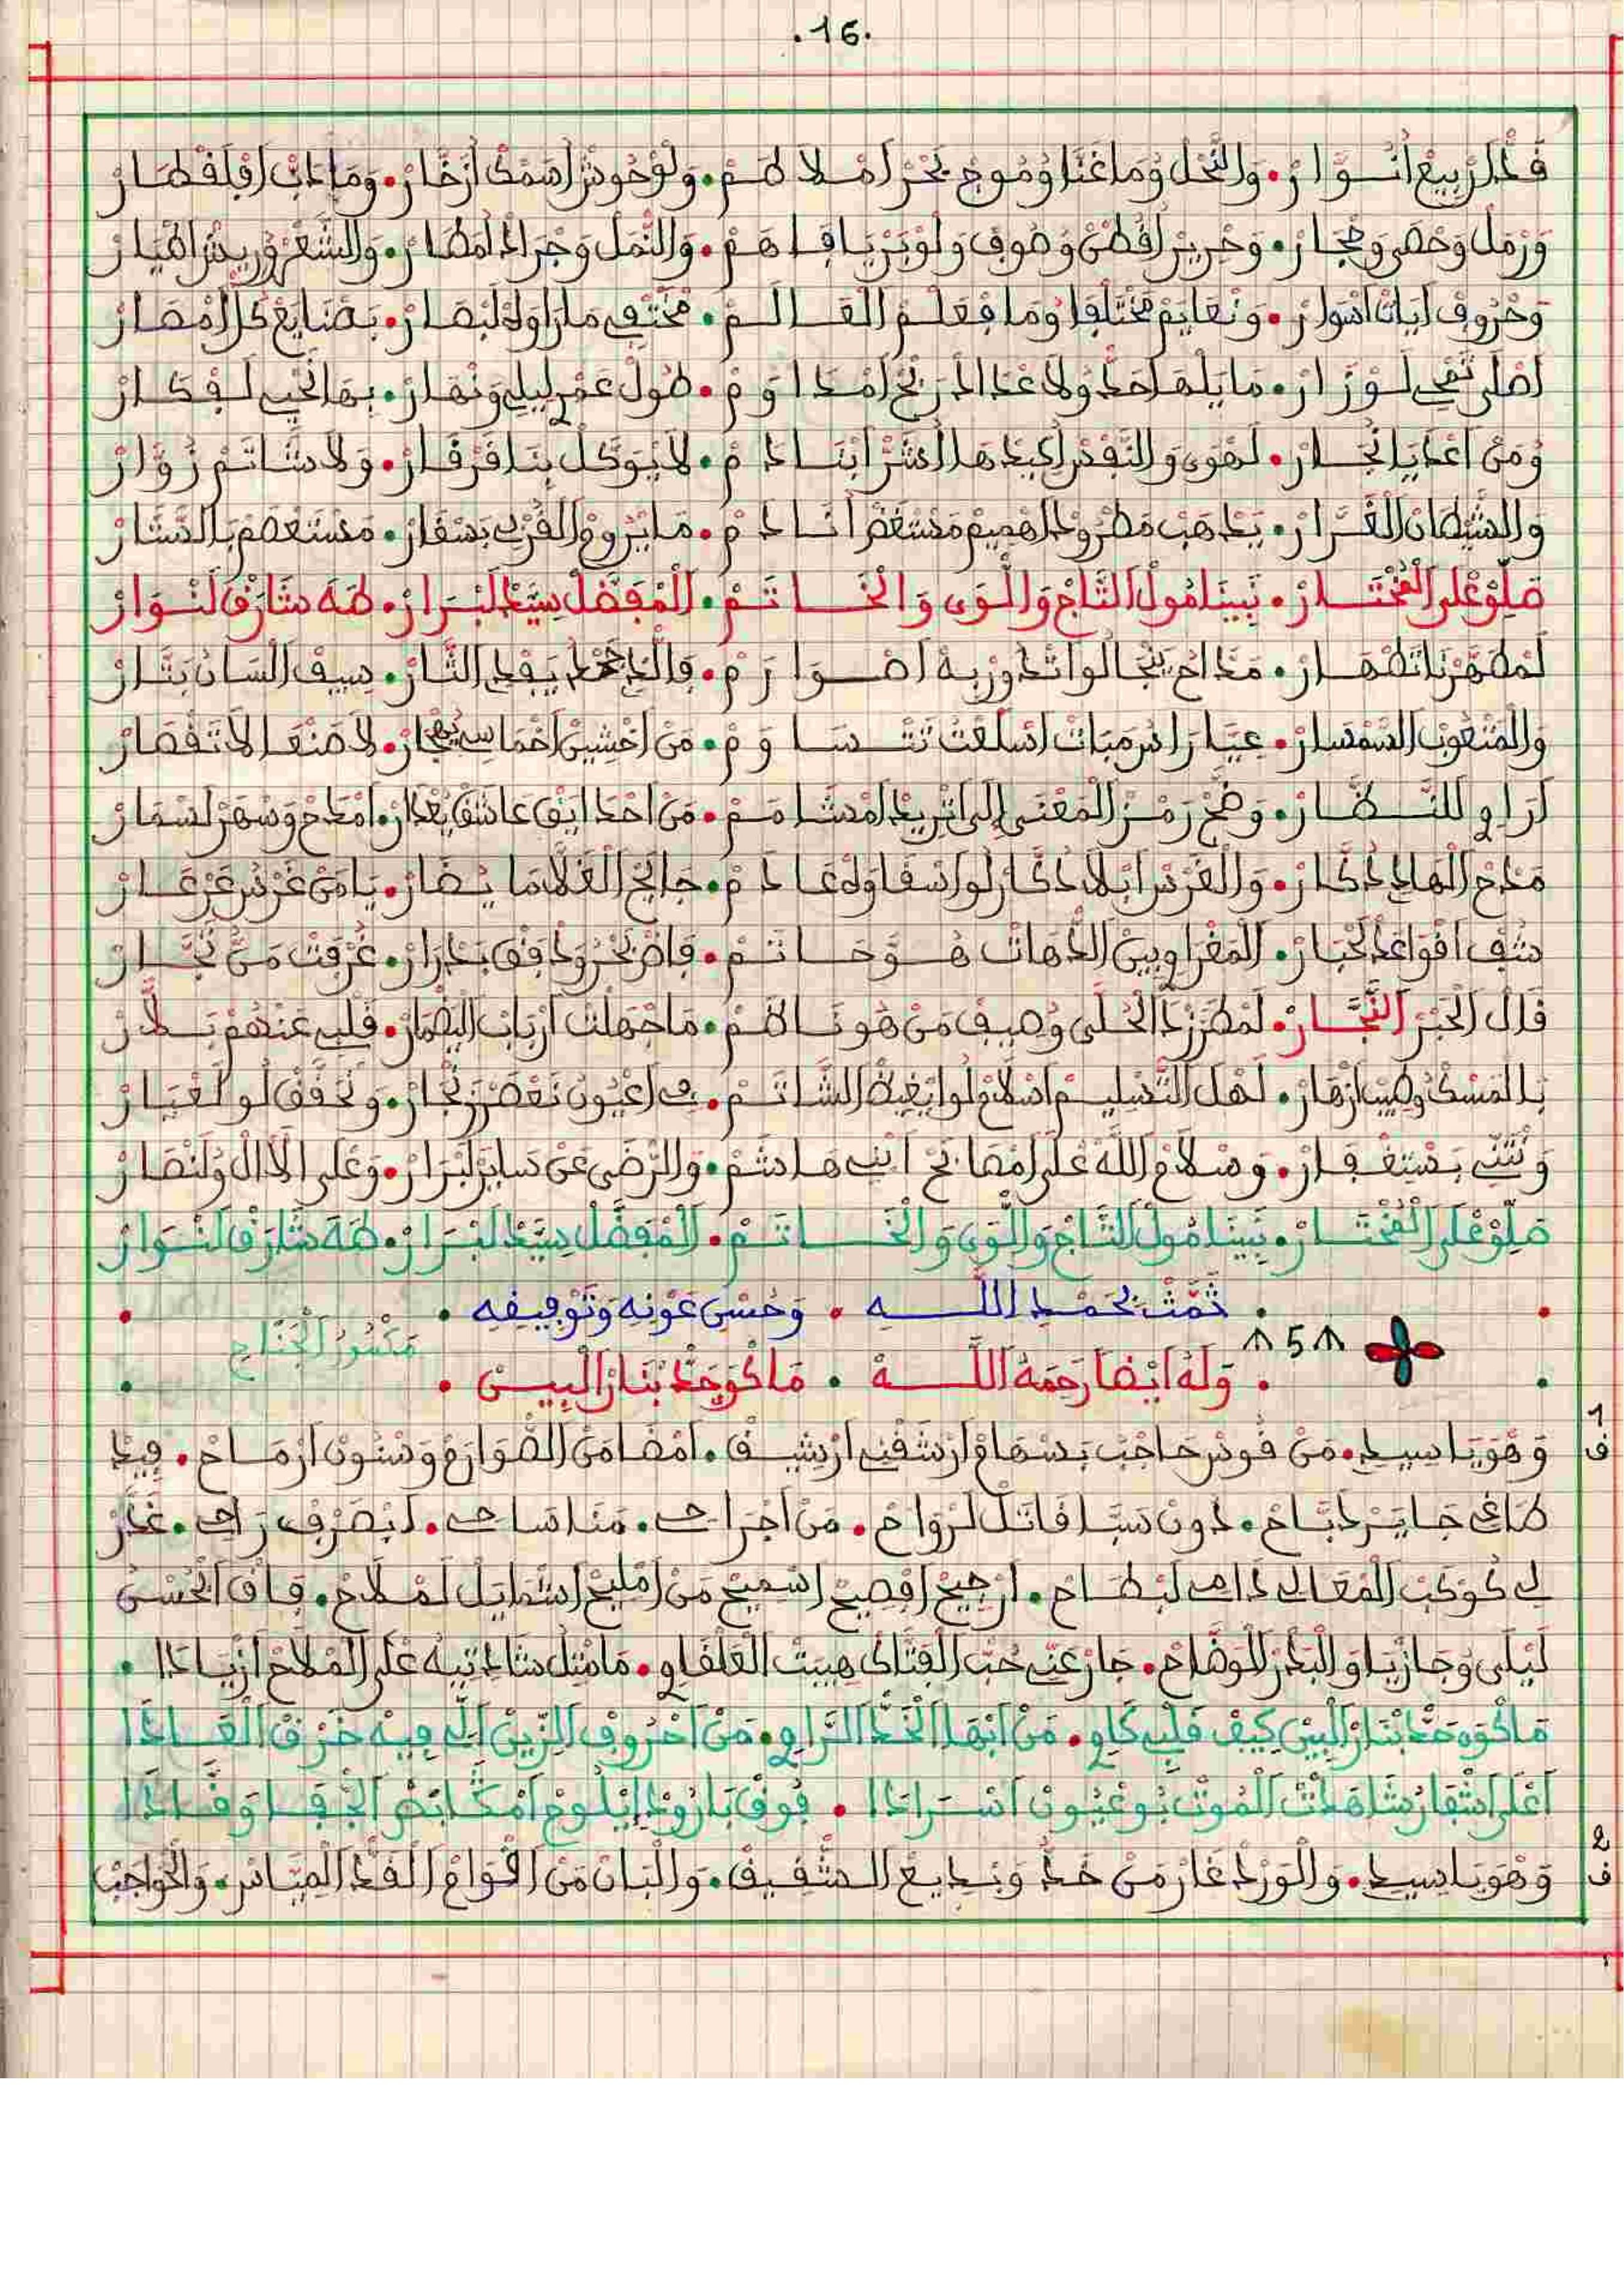 .16.
قد الربيع انوار • والنحل وما غنا وموج بحر املاطم • ولوحوش اسمك ازخار • وما داب افلقطار
ورمل وحصى وحجار • وحرير اقطن وصوف ولوبر يافاهم • والنمل وجراد امطار • والشعر وريش اطيار
وحروف ايات اسوار • ونعايم مختلفا وما فعلم العالم • مختفي مارا وله لبصار • بضنايع كل امصار
اصلى تمحي لوزار • ما يلها احد ولا عداد اربح امداوم • طول عمر ليلي ونهار • بها انحيي لفكار
ومن اعدايا نجار • لهوى والنفس اكيدها الشر ابنادم • لا يوكل بنا فرفار • ولا شاتم زوار
والشيطان الغرار • يذهب مطرود اهميم مستغض انادم • ما يروع القربي بسفار • مستعصم بالستار
صلوا على المختار • نبينا مول التاج والوى والخاتم • المفضل سيد لبرار • طه شارق لنوار
لمطهرنا تطهار • مداح ينجالوا تدور به اصوارم • والذي جحد يفدي الثار • سيف السان بتار
والمتعوب السمسار • عيار راس مبات اسلعت تتساوم • من اخشين احماسي يهجار • لا صنعا لا تقصار
اراوي للنظار • وضح رمز المعنى الى اتريد امشامم • من احدايق عاشق يعدار • امداح وسهر لسمار
مدح الهادي ذكار • والغرس ابلا ذكار لوا سقاوه عادم • جايح الغلا ما يضار • يا من غرس غرعار
شف اقواعد لحبار • المغراويين الدهات هو حاتم • فاض بحر ودافق بدرار • غرفت من نجار
قال الحبر النجار • لمطرز ذا الحلى وصيف من هو ناظم • ما جهلت ارباب النضمار • قلبي عنهم بطار
بالمسك وطيب ازهار • لهل التسليم اسلام لوا يغيظ الشاتم • في اعيون نعصر زنجار • ونحفف لو لغيار
ونثني بستغفار • وسلام الله على امصابح ابني هاشم • والرضى عن ساير لبرار • وعلى الال ولنصار
صلوا على المختار • نبينا مول التاج والوى والخاتم • المفضل سيد لبرار • طه شارق لنوار
• ثمت بحمد الله • وحسن عونه وتوفيقه •
5 مكسور الجناح
• وله ايضا رحمه الله • ماكوو حد بنار البين •
1 ف
وهو يا سيدي • من قوس حاجب بسهام ارشقني ارشيق • امضا من الصوارم وسنون ارماح • فيد
طاغي جاير دباح • دون سبا قاتل لرواح • من اجراحي • منا ساحي • ابصرف راحي • غدر
لي كوكب المعالي دامي لبطاح • ارجيح افصيح اسميح من امليح اشمايل لملاح • فاق الحسن
ليلى وجازيا والبدر الوضاح • جار عني حب الفتاك هيبت العلفاوي • ما مثل شاد تيه على الملاح ازيادا •
ماكوو حد بنار البين كيف قلبي كاوي • من ابها الخد الراوي • من احروف الزين الي فيه خرق العادا
اعلى اشفار شاهدت الموت بو عيون اسرادا • فوق بارود ايلوح امكابض الجفا وقادا
2 ف
وهو يا سيدي • والورد غار من خد وبديع الشقيق • والبان من اقوام القد المياس • والحواجب